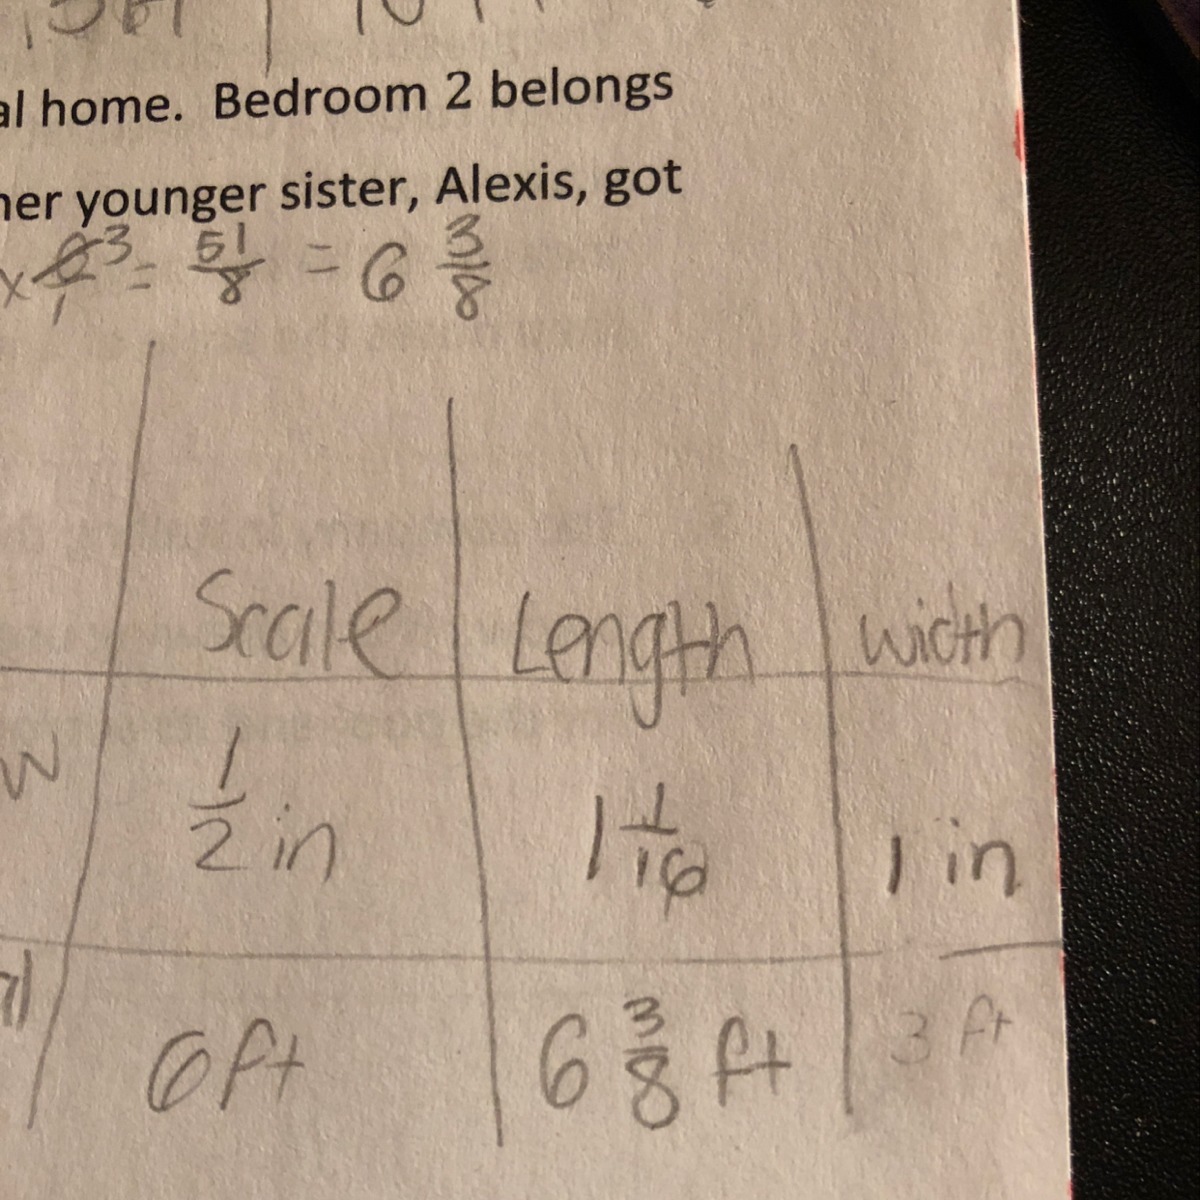 al home. Bedroom 2 belongs
her younger sister, Alexis, got
x 6/1 3 = 51/8 = 6 3/8
Scale Length width
w 1/2 in 1 1/16 1 in
6ft 6 3/8 ft 3 ft